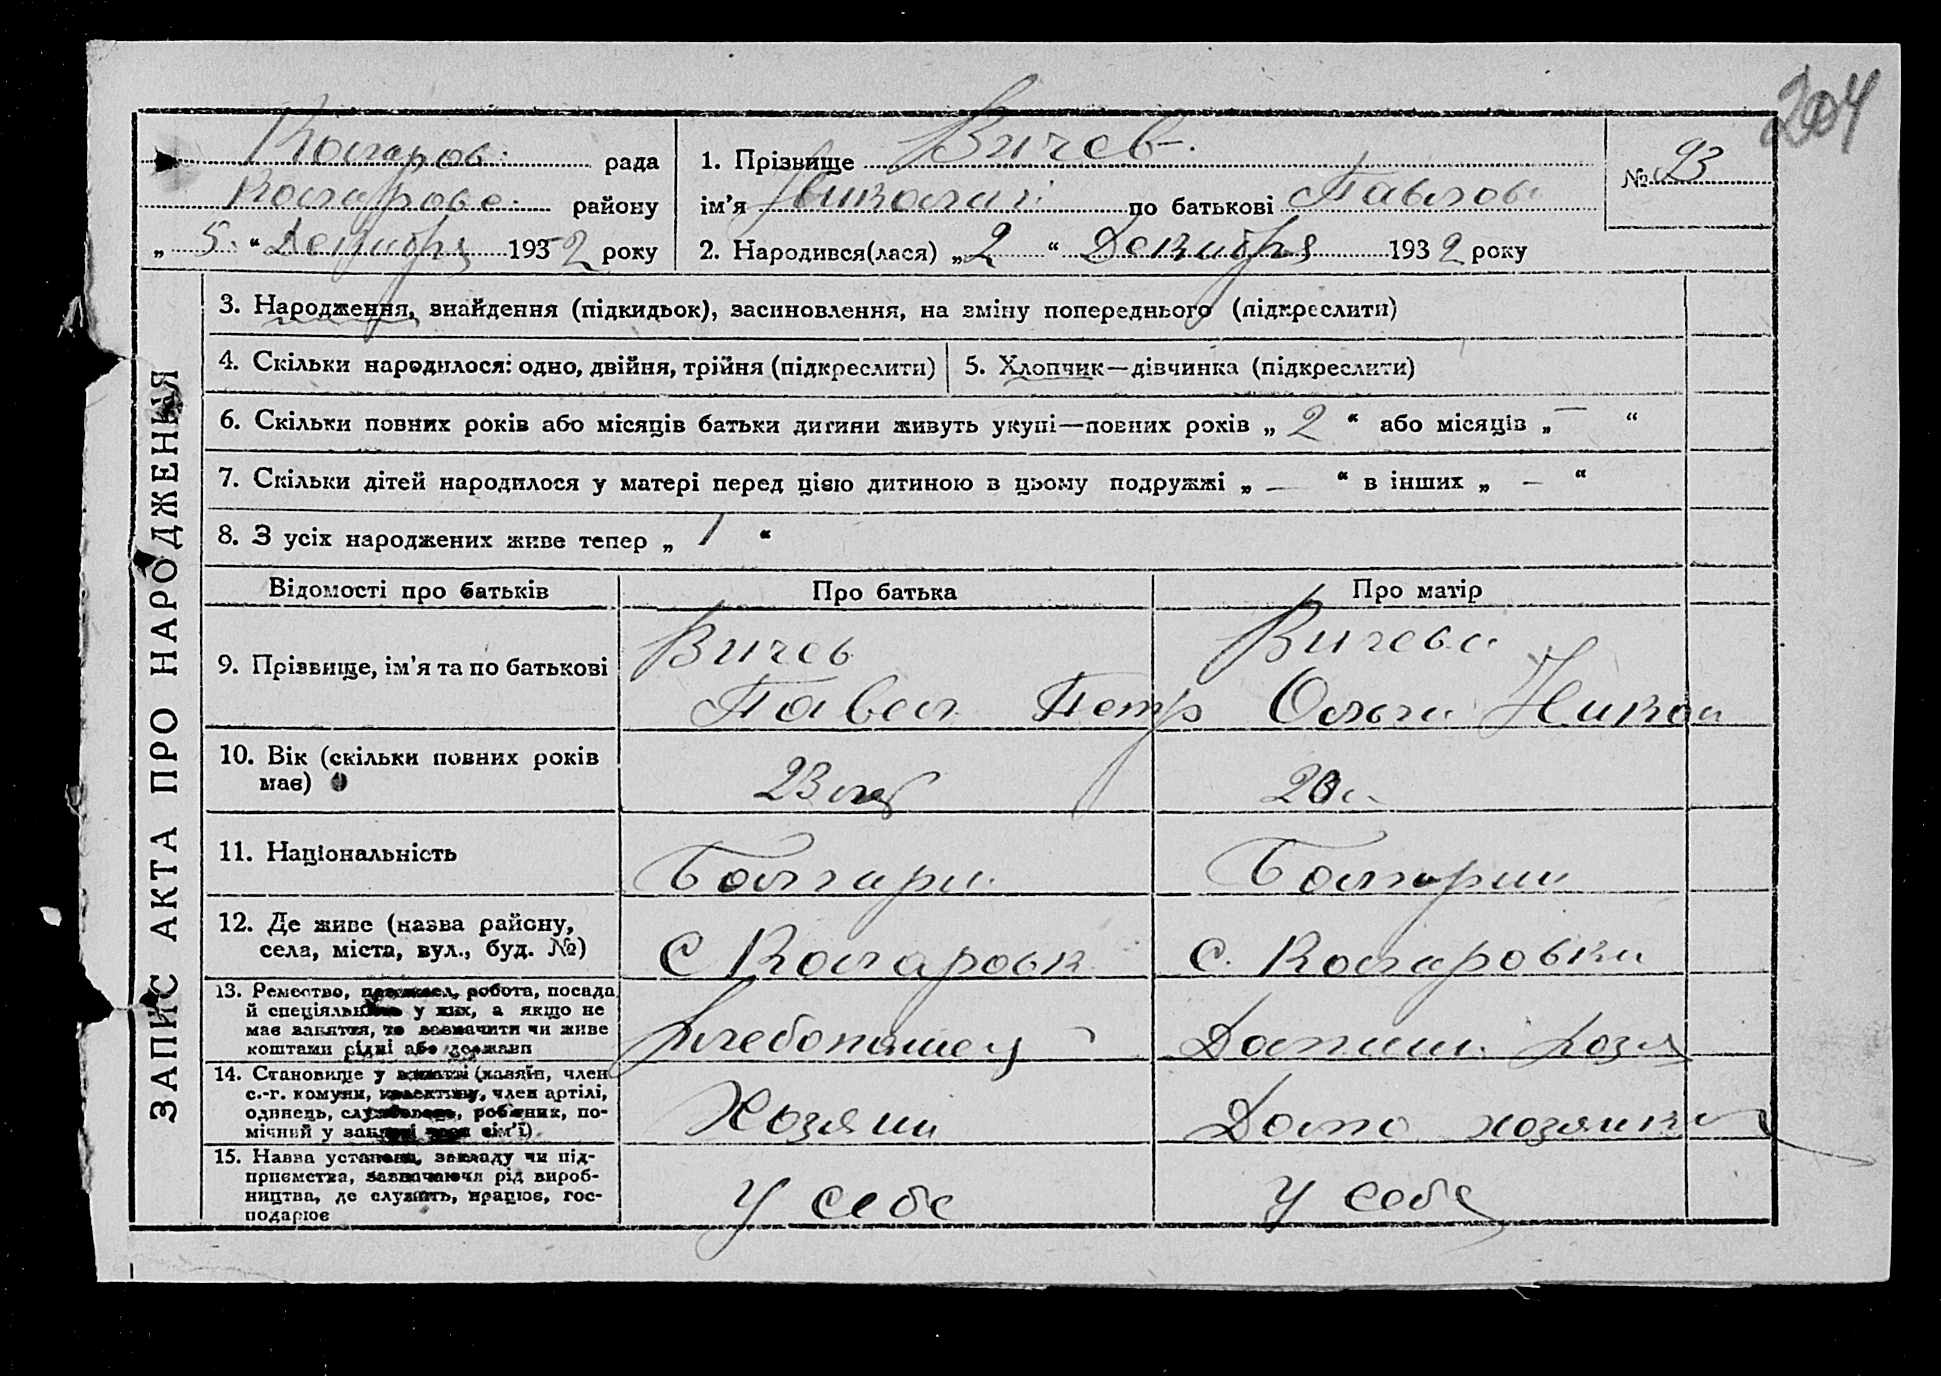 204
Коларов. рада
Коларове. району
„ 5. “ Декабря 1932 року
1. Прізвище Вичев.
ім’я Николай по батькові Павлов
2. Народився(лася) „2 “ Декабря 1932 року
№ 93
ЗАПИС АКТА ПРО НАРОДЖЕННЯ
3. Народження, знайдення (підкидьок), засиновлення, на зміну попереднього (підкреслити)
4. Скільки народилося: одно, двійня, трійня (підкреслити)
5. Хлопчик—дівчинка (підкреслити)
6. Скільки повних років або місяців батьки дитини живуть укупі—повних рохів „ 2 “ або місяців „ — “
7. Скільки дітей народилося у матері перед цією дитиною в цьому подружжі „ — “ в інших „ — “
8. З усіх народжених живе тепер „ 1 “
Відомості про батьків
Про батька
Про матір
9. Прізвище, ім’я та по батькові
Вичев
Павел Петр
Вичева
Ольга Никол
10. Вік (скільки повних років
має)
23
20
11. Національність
Болгари
Болгарии
12. Де живе (назва району,
села, міста, вул., буд. №)
С Коларовк
С. Коларовка
13. Ремество, промисел, робота, посада
й спеціяльність у них, а якщо не
має заняття, то зазначити чи живе
коштами рідні або держави
Хлебопашец
Домаш. хозя
14. Становище у занятті (хазяїн, член
с.-г. комуни, колективу, член артілі,
одинець, службовець, робітник, по-
мічний у занятті члєн сім’ї)
Хозяин
Домо хозяика
15. Назва установи, закладу чи під-
приємства, зазначаючи рід вироб-
ництва, де служить, працює, гос-
подарює
У себе
У себе